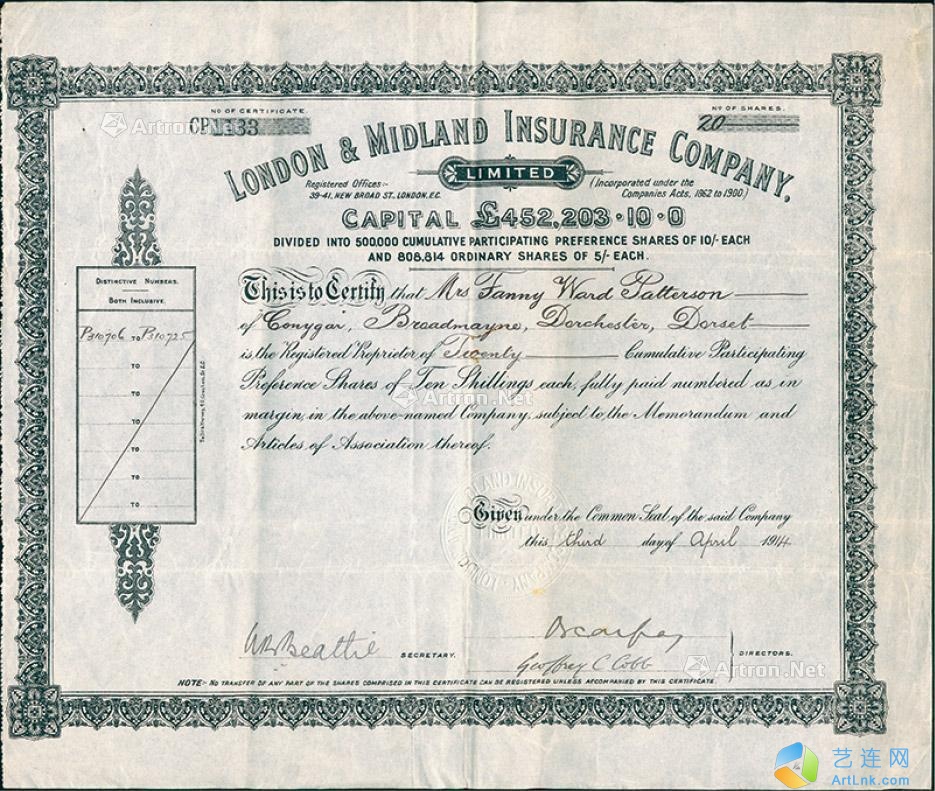 No OF CERTIFICATE.
No OF SHARES.
20
LONDON & MIDLAND INSURANCE COMPANY,
LIMITED
Registered Offices:-
39-41, NEW BROAD ST., LONDON. E.C.
(Incorporated under the
Companies Acts, 1862 to 1900.)
CAPITAL £452,203·10·0
DIVIDED INTO 500,000 CUMULATIVE PARTICIPATING PREFERENCE SHARES OF 10/- EACH
AND 808,814 ORDINARY SHARES OF 5/- EACH.
DISTINCTIVE NUMBERS.
BOTH INCLUSIVE.
P310706 TO P310725
TO
TO
TO
TO
TO
TO
This is to Certify that Mrs Fanny Ward Patterson
of Conygar, Broadmayne, Dorchester, Dorset
is the Registered Proprietor of Twenty Cumulative Participating
Preference Shares of Ten Shillings each, fully paid numbered as in
margin, in the above-named Company, subject to the Memorandum and
Articles of Association thereof.
Given under the Common Seal of the said Company
this third day of April 1914
WB Beattie SECRETARY.
Geoffrey C Cobb
DIRECTORS.
NOTE:- NO TRANSFER OF ANY PART OF THE SHARES COMPRISED IN THIS CERTIFICATE CAN BE REGISTERED UNLESS ACCOMPANIED BY THIS CERTIFICATE.
Artron.Net
Artron.Net
Artron.Net
艺连网
ArtLnk.com